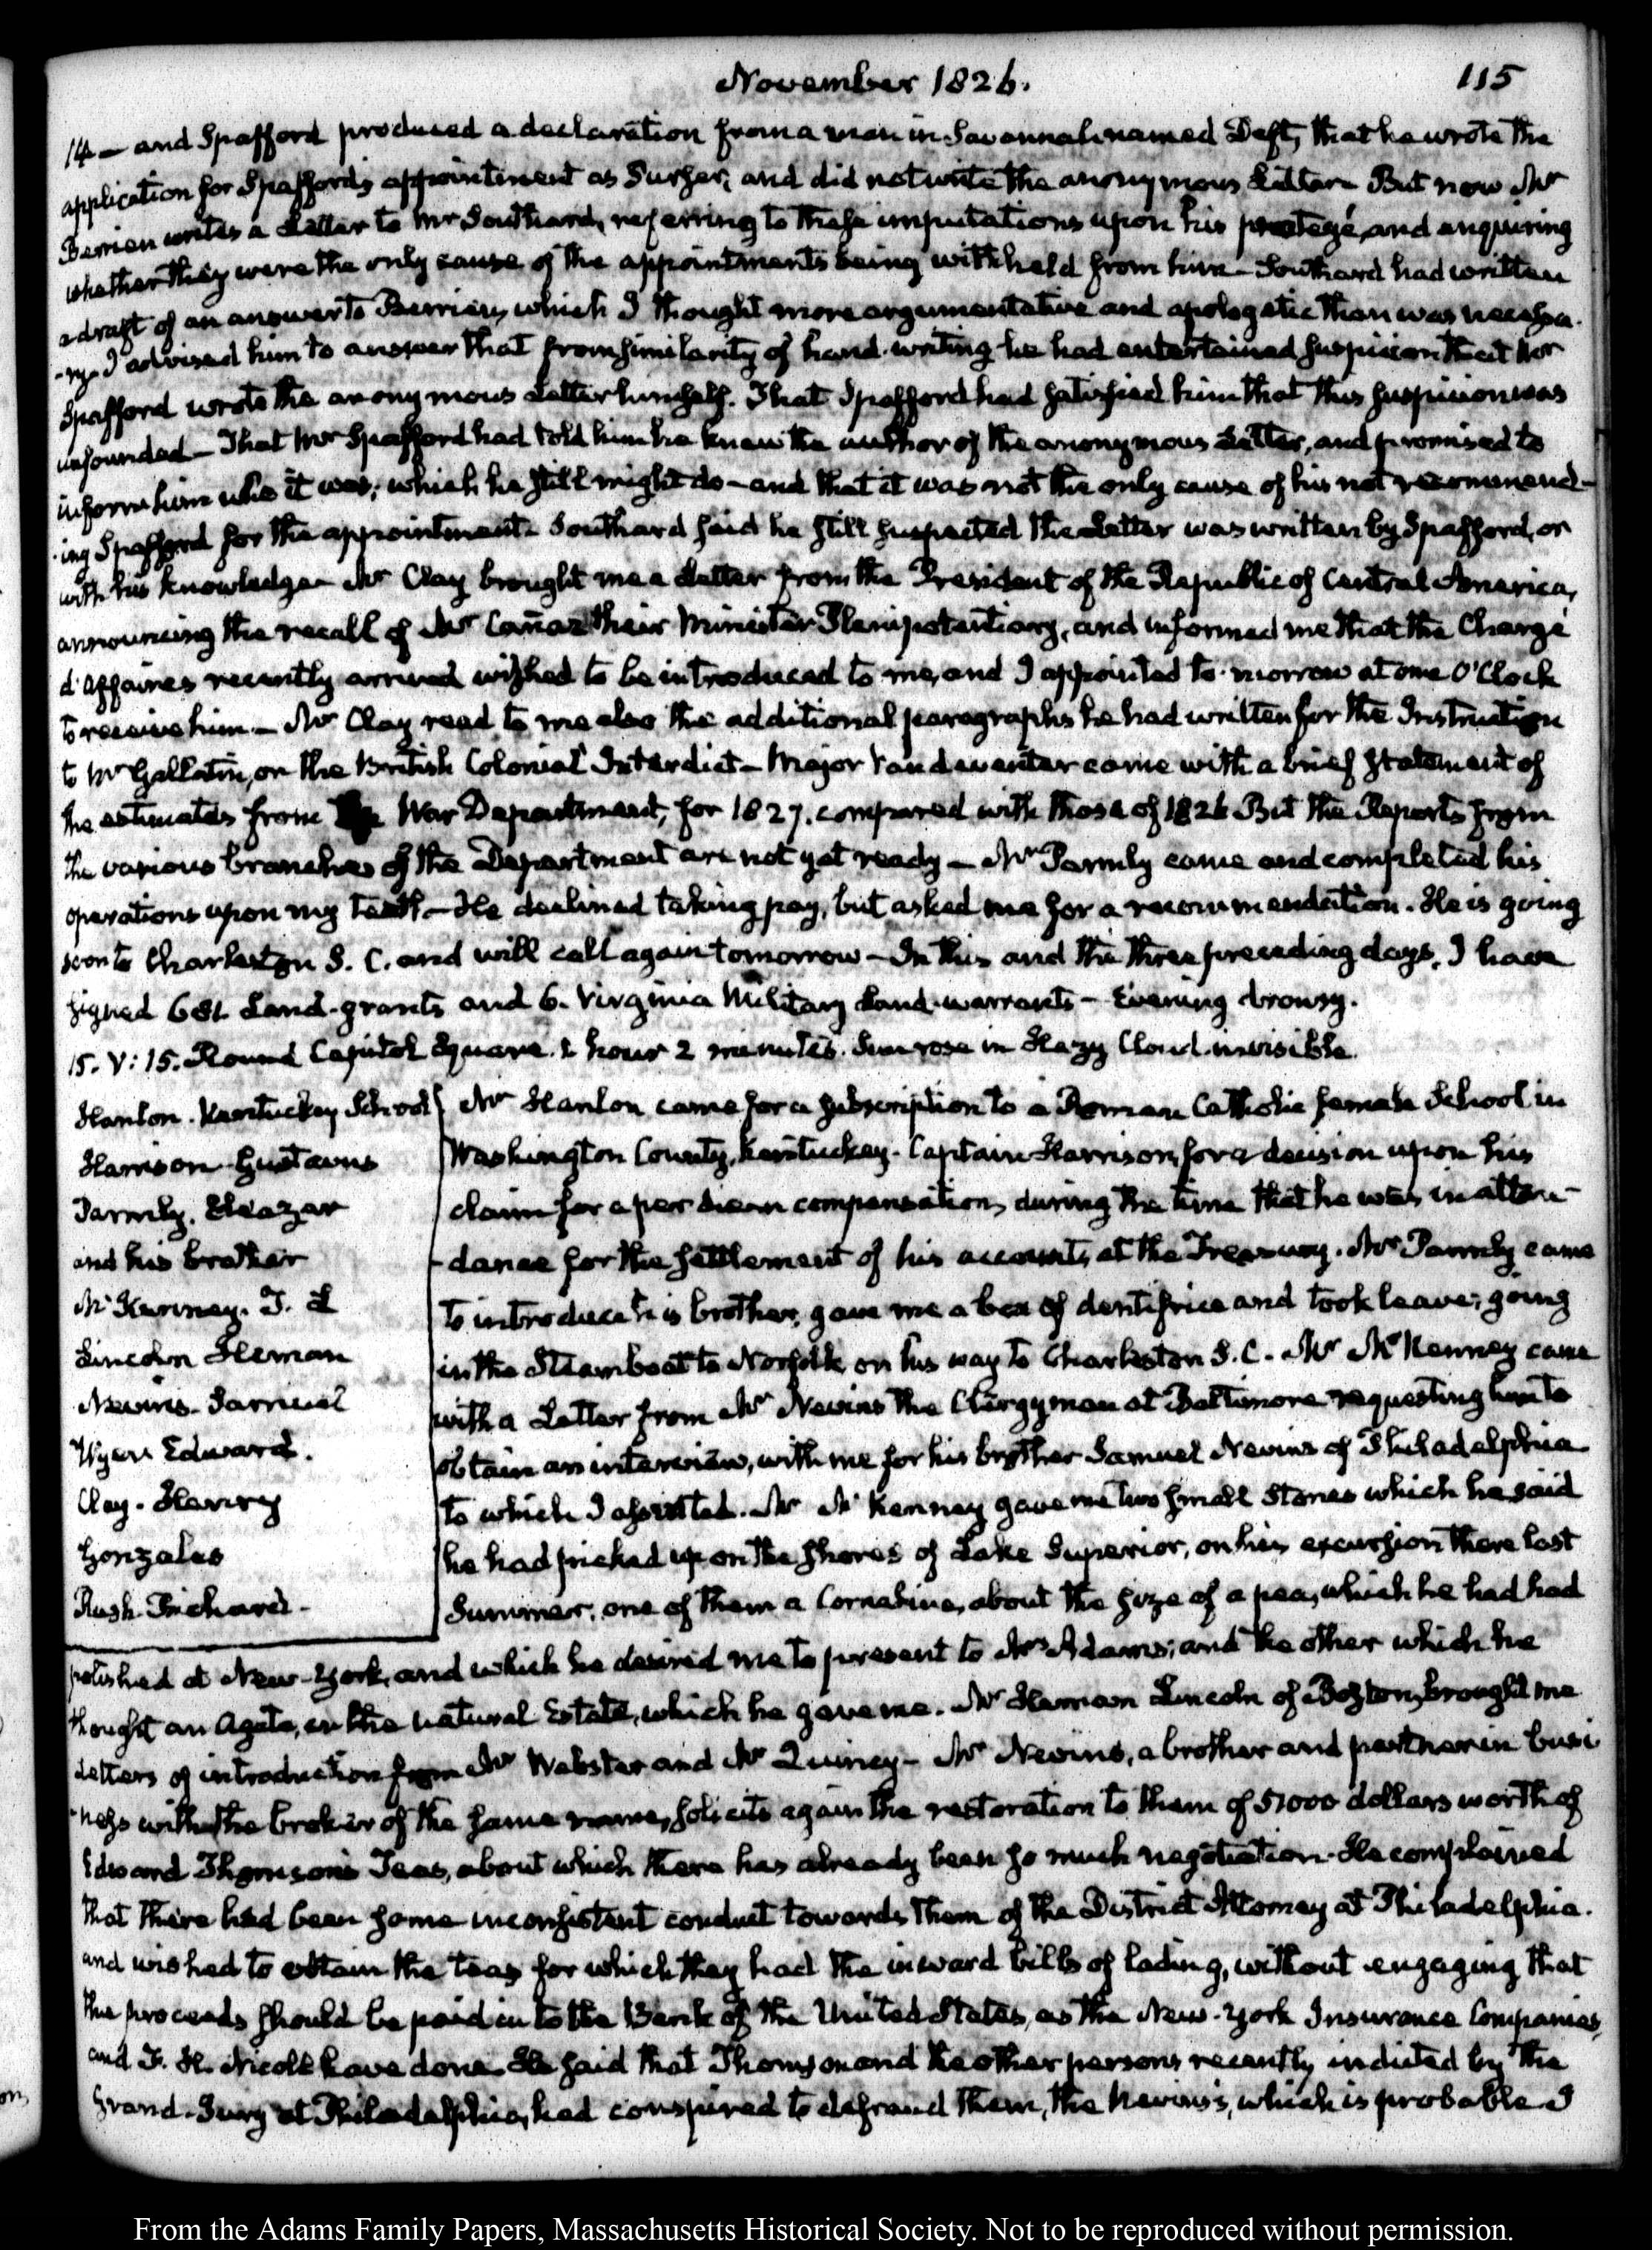 November 1826.
115
14 — and Spafford produced a declaration from a man in Savannah named Deft, that he wrote the
application for Spafford's appointment as Purser, and did not write the anonymous Letter — But now Mr
Berrien writes a Letter to Mr Southard, referring to these imputations upon his protegé, and enquiring
whether they were the only cause of the appointments being withheld from him — Southard had written
a draft of an answer to Berrien, which I thought more argumentative and apologetic than was necessa-
-ry — I advised him to answer that from similarity of hand-writing he had entertained suspicion that Mr
Spafford wrote the anonymous Letter himself. That Spafford had satisfied him that this suspicion was
unfounded — That Mr Spafford had told him he knew the author of the anonymous Letter, and promised to
inform him who it was; which he still might do — and that it was not the only cause of his not recommend-
-ing Spafford for the appointment — Southard said he still suspected the Letter was written by Spafford, or
with his knowledge — Mr Clay brought me a Letter from the President of the Republic of Central America,
announcing the recall of Mr Cañaz their Minister Plenipotentiary, and informed me that the Chargé
d'Affaires recently arrived wished to be introduced to me, and I appointed to-morrow at one O'Clock
to receive him — Mr Clay read to me also the additional paragraphs he had written for the Instruction
to Mr Gallatin, on the British Colonial Interdict — Major Vandeventer came with a brief statement of
the estimates from the War Department, for 1827. compared with those of 1826 But the Reports from
the various branches of the Department are not yet ready — Mr Parmly came and completed his
operations upon my teeth — He declined taking pay, but asked me for a recommendation. He is going
soon to Charleston S. C. and will call again tomorrow — In this and the three preceding days, I have
signed 681 Land-grants and 6. Virginia Military Land-warrants — Evening drowsy.
15. V: 15. Round Capitol Square. 1 hour 2 minutes. Sun rose in Hazy Cloud invisible.
Hanlon. Kentucky School
Harrison Gustavus
Parmly. Eleazar
and his brother
McKenney. T. L
Lincoln Heman
Nevins. Samuel
Wyer Edward.
Clay. Henry
Gonzales
Rush. Richard.
Mr Hanlon came for a subscription to a Roman Catholic female School in
Washington County, Kentuckey. Captain Harrison, for a decision upon his
claim for a per diem compensation, during the time that he was in atten-
-dance for the settlement of his accounts, at the Treasury. Mr Parmly came
to introduce his brother, gave me a box of dentifrice and took leave; going
in the Steamboat to Norfolk on his way to Charleston S. C. Mr McKenney came
with a Letter from Mr Nevins the Clergyman at Baltimore requesting him to
obtain an interview, with me for his brother Samuel Nevins of Philadelphia
to which I assented. Mr McKenney gave me two small stones which he said
he had picked up on the shores of Lake Superior, on his excursion there last
Summer, one of them a Cornelina, about the size of a pea, which he had had
polished at New-York, and which he desired me to present to Mrs Adams; and the other which he
thought an Agate, in the natural Estate, which he gave me. Mr Heman Lincoln of Boston, brought me
Letters of introduction from Mr Webster and Mr Quincy — Mr Nevins, a brother and partner in busi
-ness with the broker of the same name, solicits again the restoration to them of 51000 dollars worth of
Edward Thomson's Teas, about which there has already been so much negotiation. He complained
that there had been some inconsistent conduct towards them of the District Attorney at Philadelphia.
and wished to obtain the teas for which they had the inward bills of lading, without engaging that
the proceeds should be paid in to the Bank of the United States, as the New-York Insurance Companies,
and F. H. Nicoll have done. He said that Thomson and the other persons recently indicted by the
Grand-Jury at Philadelphia, had conspired to defraud them, the Nevins's, which is probable. I
From the Adams Family Papers, Massachusetts Historical Society. Not to be reproduced without permission.